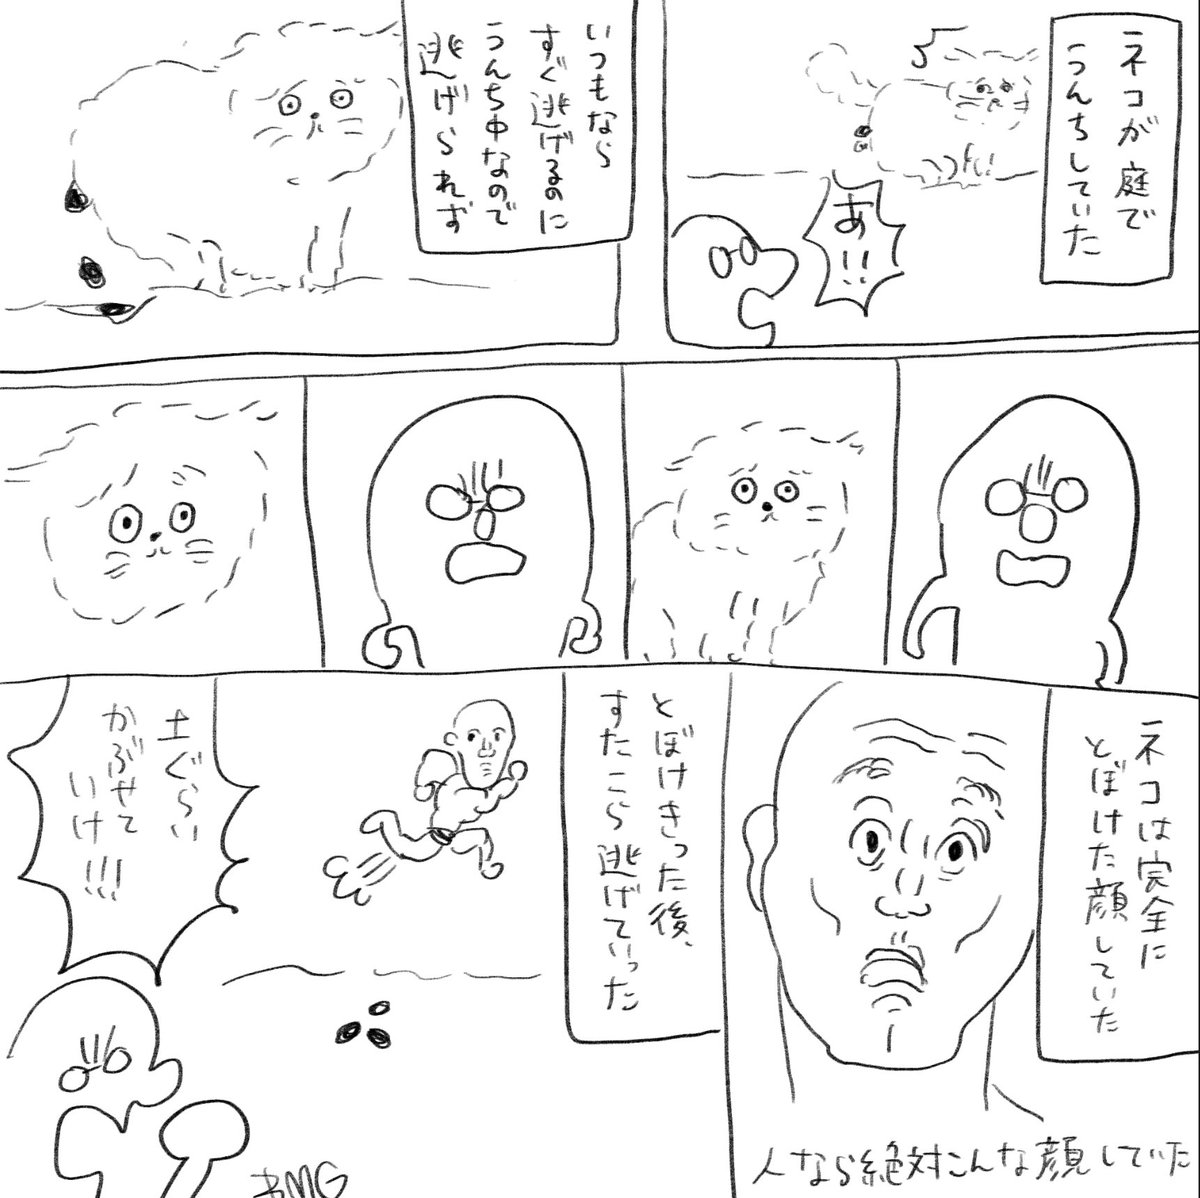 ネコが庭で
うんちしていた
あ!!
いつもなら
すぐ逃げるのに
うんち中なので
逃げられず
ネコは完全に
とぼけた顔していた
人なら絶対こんな顔していた
とぼけきった後、
すたこら逃げていった
土ぐらい
かぶせて
いけ!!!